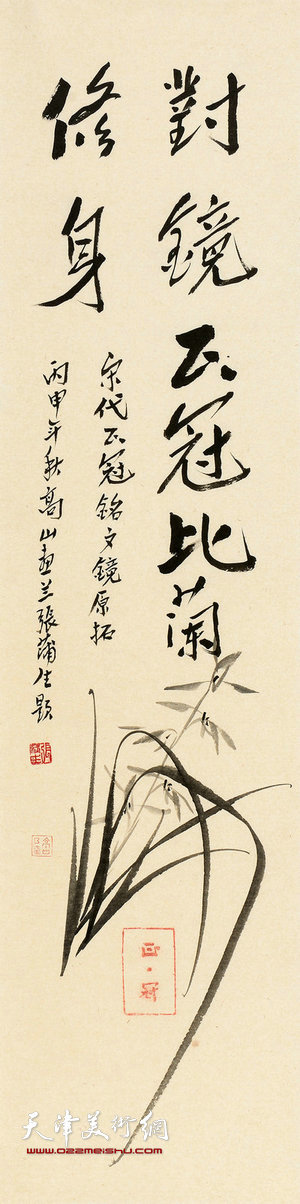 對鏡正冠比蘭
修身
宋代正冠銘文鏡原拓
丙申年秋高山画兰張蒲生題
正·冠
天津美術網
www.022meishu.com